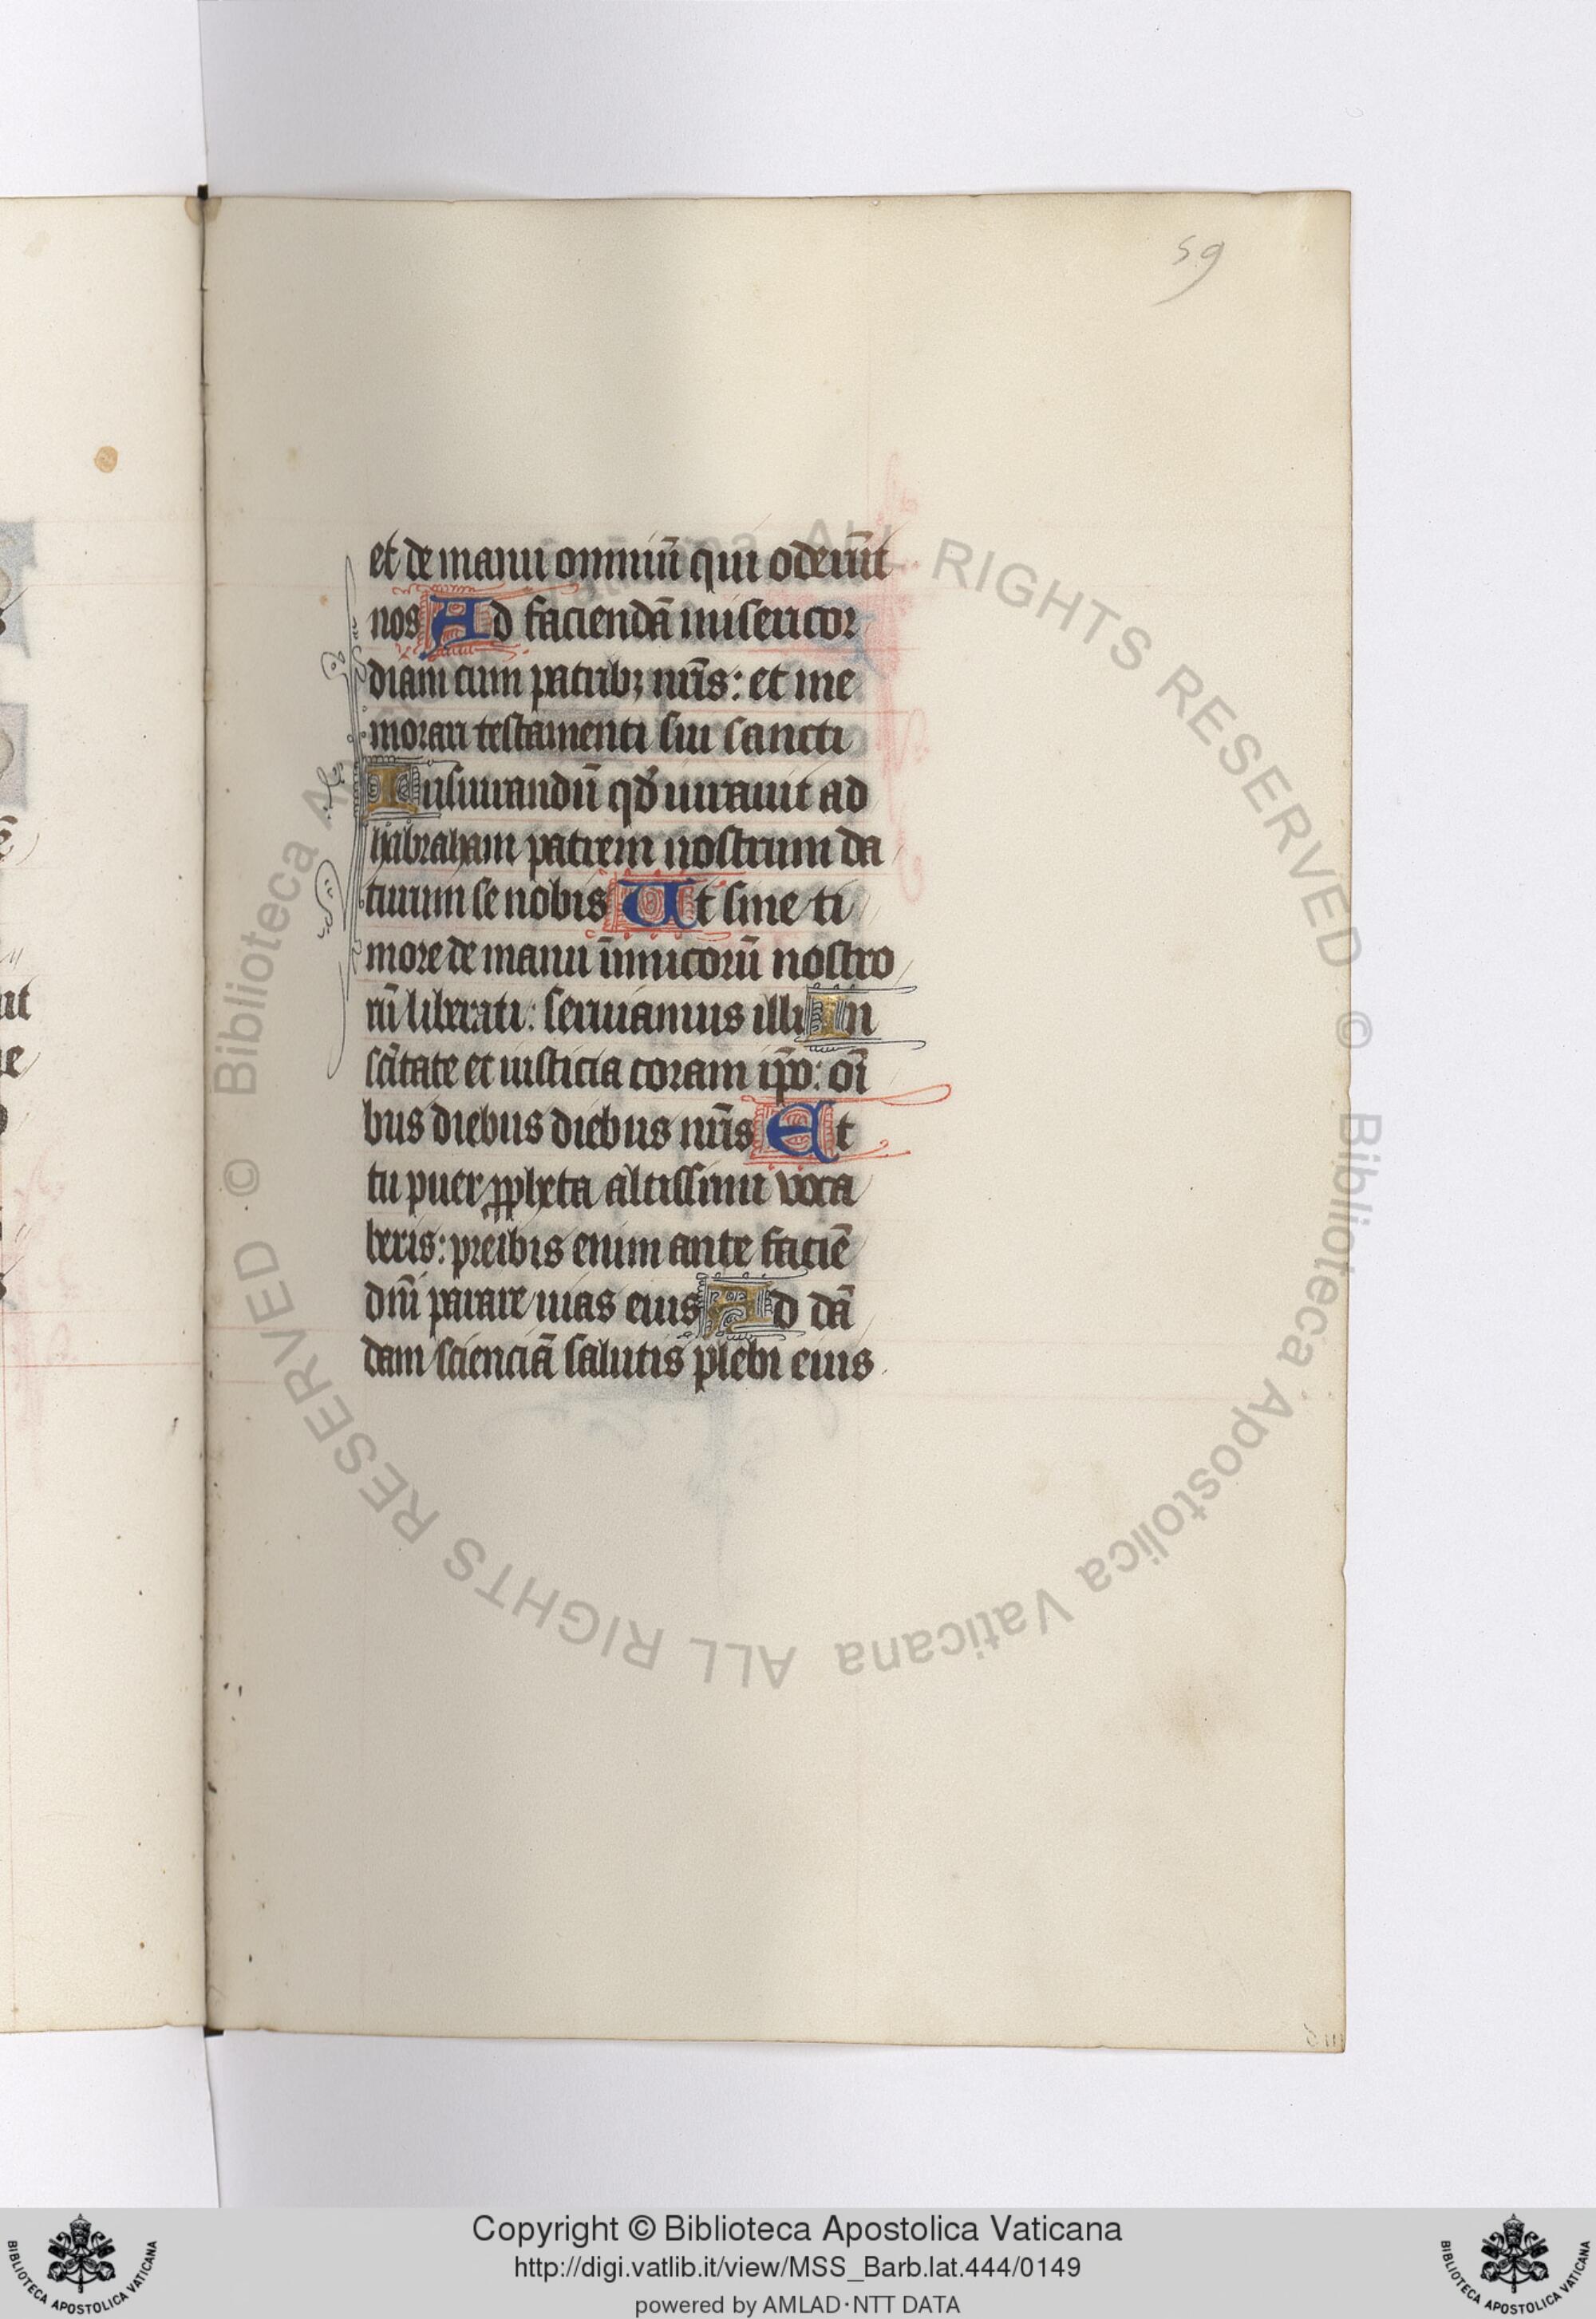 59
et de manu omniū qui oderūt
nos Ad faciendā misericor
diam cum patribꝫ nr̄is: et me
morari testamenti sui sancti
Iusiurandū qd̛ iurauit ad
habraham patrem nostrum da
turum se nobis Ut sine ti
more de manu īimicorū nostro
rū liberati: seruiamus illi In
sc̄itate et iusticia coram ip̄o: oī
bus diebus diebus nr̄is Et
tu puer ꝓpheta altissimi voca
beris: preibis enim ante faciē
dn̄i parare uias eius Ad dā
dam scienciā salutis plebi eius
© Biblioteca Apostolica Vaticana ALL RIGHTS RESERVED © Biblioteca Apostolica Vaticana ALL RIGHTS RESERVED
Copyright © Biblioteca Apostolica Vaticana
http://digi.vatlib.it/view/MSS_Barb.lat.444/0149
powered by AMLAD·NTT DATA
BIBLIOTECA APOSTOLICA VATICANA
BIBLIOTECA APOSTOLICA VATICANA